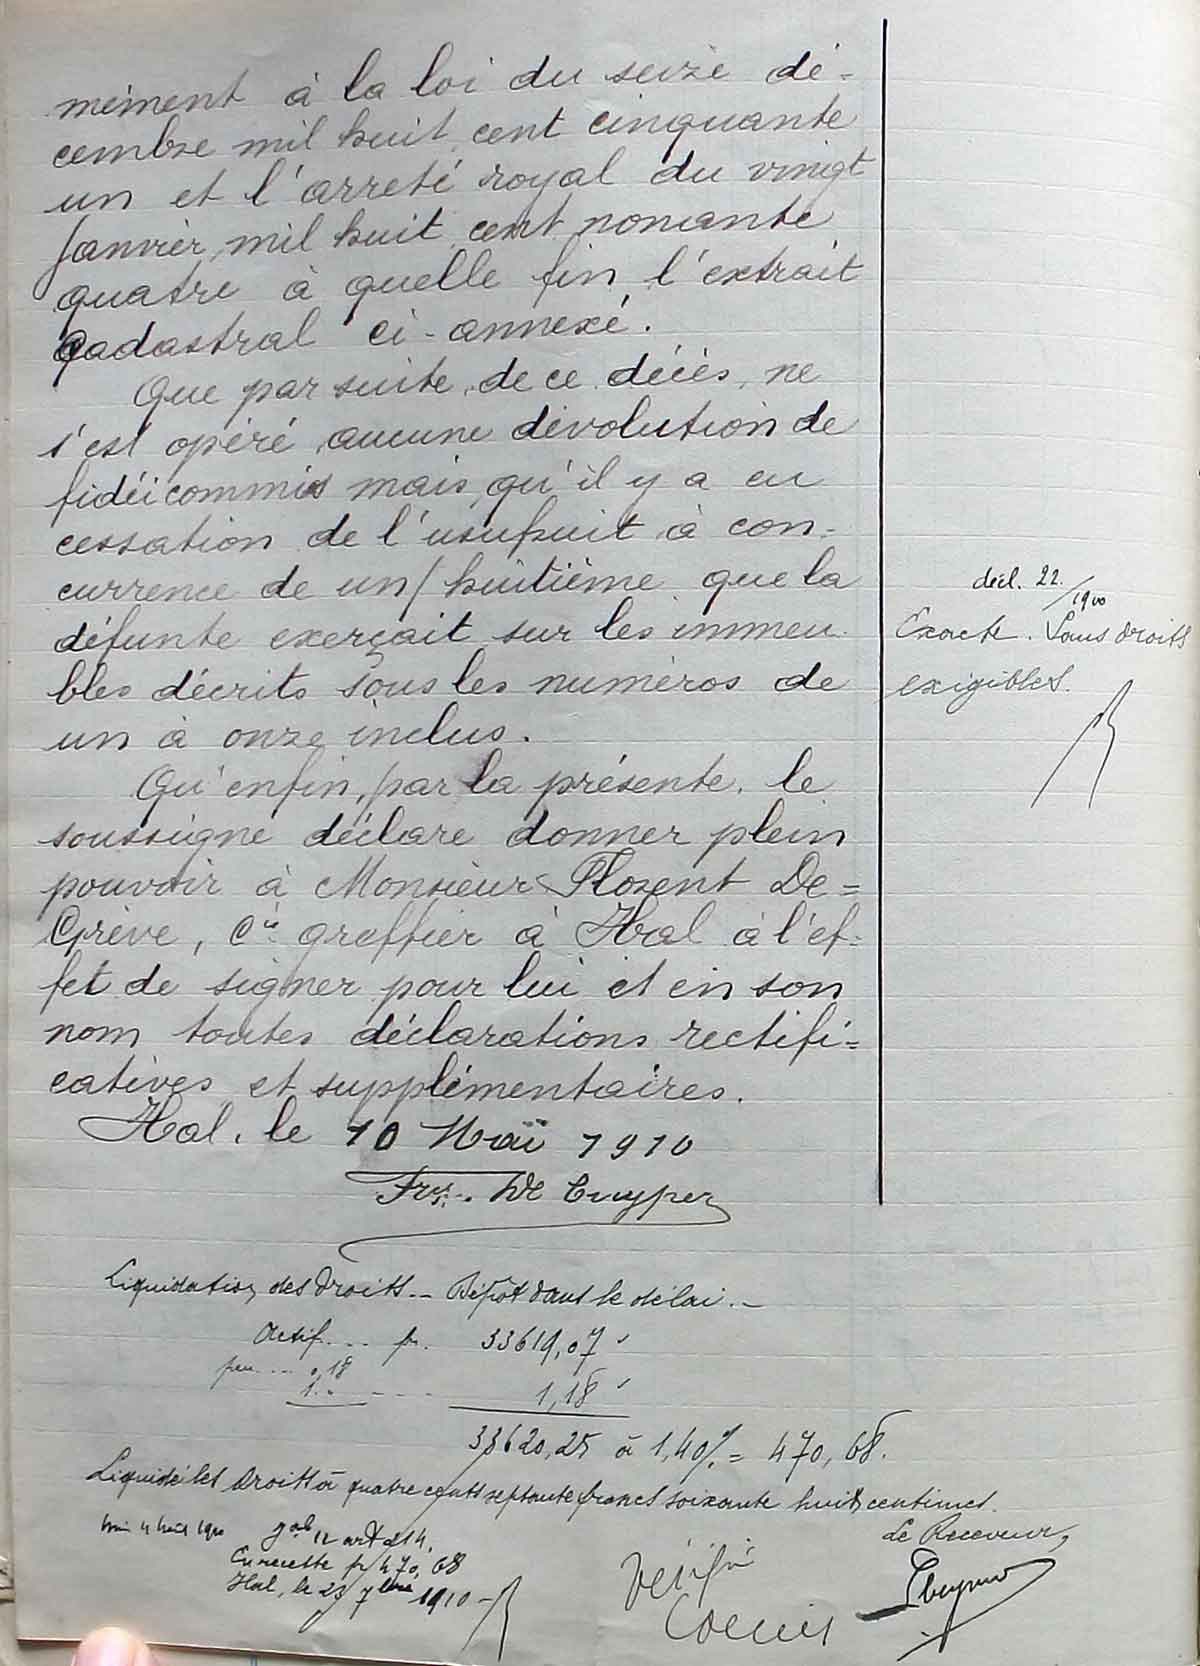 mément à la loi du seize dé-
cembre mil huit cent cinquante
un et l'arreté royal du vingt
Janvier mil huit cent nonante
quatre à quelle fin l'extrait
cadastral ci-annexé.
Que par suite de ce décès, ne
s'est opéré aucune dévolution de
fidéicommis mais qu'il y a eu
cessation de l'usufruit à con-
currence de un/huitième que la
défunte exerçait sur les immeu
bles décrits sous les numéros de
un à onze inclus.
Qu'enfin, par la présente, le
soussigné déclare donner plein
pouvoir à Monsieur Florent De=
Grève, Cis greffier à Hal à l'ef=
fet de signer pour lui et en son
nom toutes déclarations rectifi=
catives et supplémentaires.
Hal, le 10 Mai 1910
Frs. De Cuyper
décl. 22/1900
Exacte. Sans droits
exigibles.
Liquidation des droits.- Dépôt dans le délai.-
Actif... fr. 33619,07
pru.... 0,18
1.. ... 1,18
33620,25 à 1,40% = 470,68.
Liquidé les droits à quatre cents septante francs soixante huit centimes.
Le Receveur,
12 art 214.
En recette fr 470,68
Hal, le 23 7bre 1910 -
Vérifié